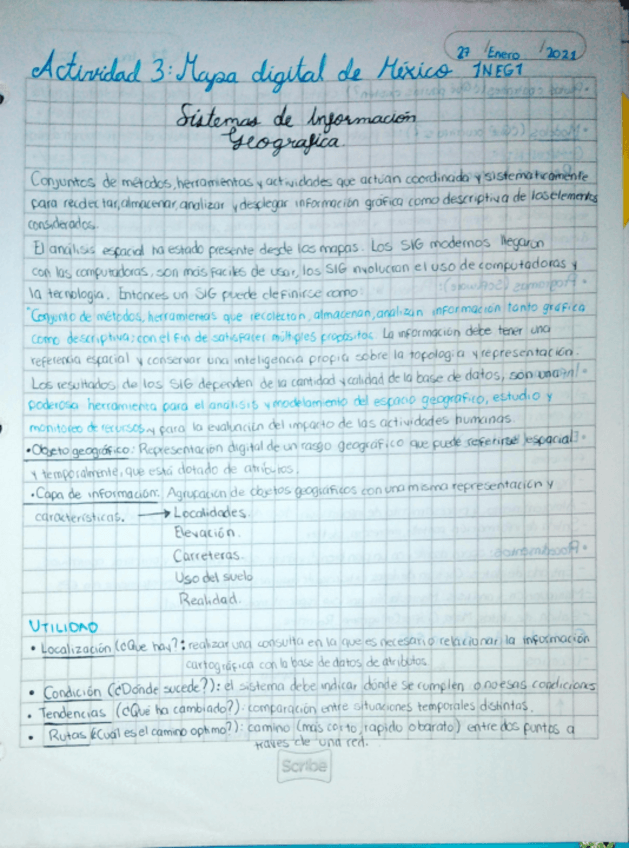 27 / Enero / 2021
Actividad 3: Mapa digital de México INEGI
Sistemas de Información
Geografica.
Conjuntos de métodos, herramientas y actividades que actúan coordinada y sistematicamente
para recolectar, almacenar, analizar y desplegar información grafica como descriptiva de los elementos
considerados.
El analisis espacial ha estado presente desde los mapas. Los SIG modernos llegaron
con las computadoras, son más faciles de usar, los SIG involucran el uso de computadoras y
la tecnologia. Entonces un SIG puede definirse como:
"Conjunto de métodos, herramientas que recolectan, almacenan, analizan información tanto gráfica
como descriptiva; con el fin de satisfacer múltiples propósitos. La información debe tener una
referencia espacial y conservar una inteligencia propia sobre la topologia y representación.
Los resultados de los SIG dependen de la cantidad y calidad de la base de datos, son una
poderosa herramienta para el analisis y modelamiento del espacio geográfico, estudio y
monitoreo de recursos y para la evaluación del impacto de las actividades humanas.
• Objeto geográfico: Representación digital de un rasgo geográfico que puede referirse espacial
y temporalmente, que está dotado de atributos.
• Capa de información: Agrupación de objetos geográficos con una misma representación y
caracteristicas. → Localidades.
Elevación.
Carreteras.
Uso del suelo
Realidad.
UTILIDAD
• Localización (¿Que hay?: realizar una consulta en la que es necesario relacionar la información
cartográfica con la base de datos de atributos.
• Condición (¿Donde sucede?): el sistema debe indicar donde se cumplen o no esas condiciones
• Tendencias (¿Qué ha cambiado?): comparación entre situaciones temporales distintas.
• Rutas (¿Cual es el camino optimo?): camino (más corto, rapido o barato) entre dos puntos a
traves de una red.
Scribe